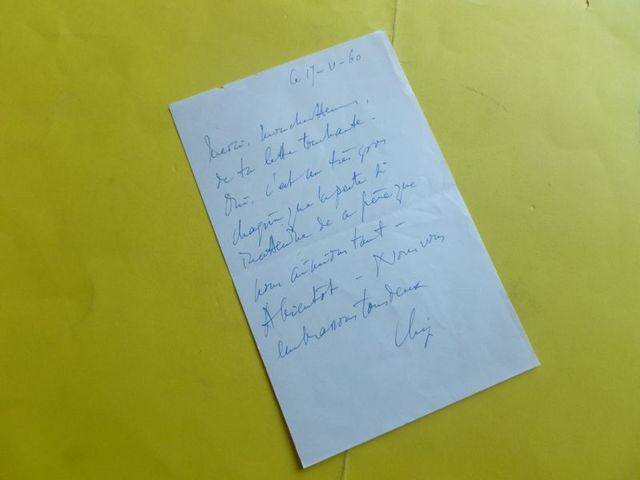 Le 17-V-60
Merci, mon cher
de ta lettre touchante.
Oui, c'est un très gros
chagrin que la perte si
inattendue de ce frère que
nous aimions tant -
A bientôt - Nous vous
embrassons tous deux